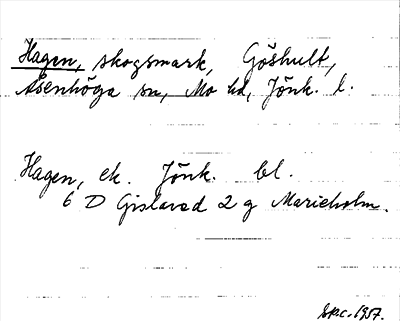 Hagen, skogsmark, Göshult,
Åsenhöga sn, Mo hd, Jönk. l.
Hagen, ek. Jönk. bl.
6 D Gislaved 2 g Marieholm.
1957.